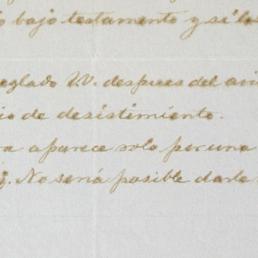 bajo testamento y si los
eglado V.V. despues del avi
io de desistimiento.
ra aparece solo por una
No seria posible darle